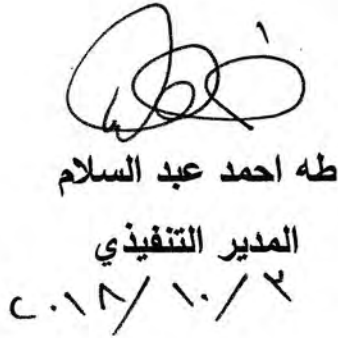 طه احمد عبد السلام
المدير التنفيذي
٢٠١٨/١٠/٢